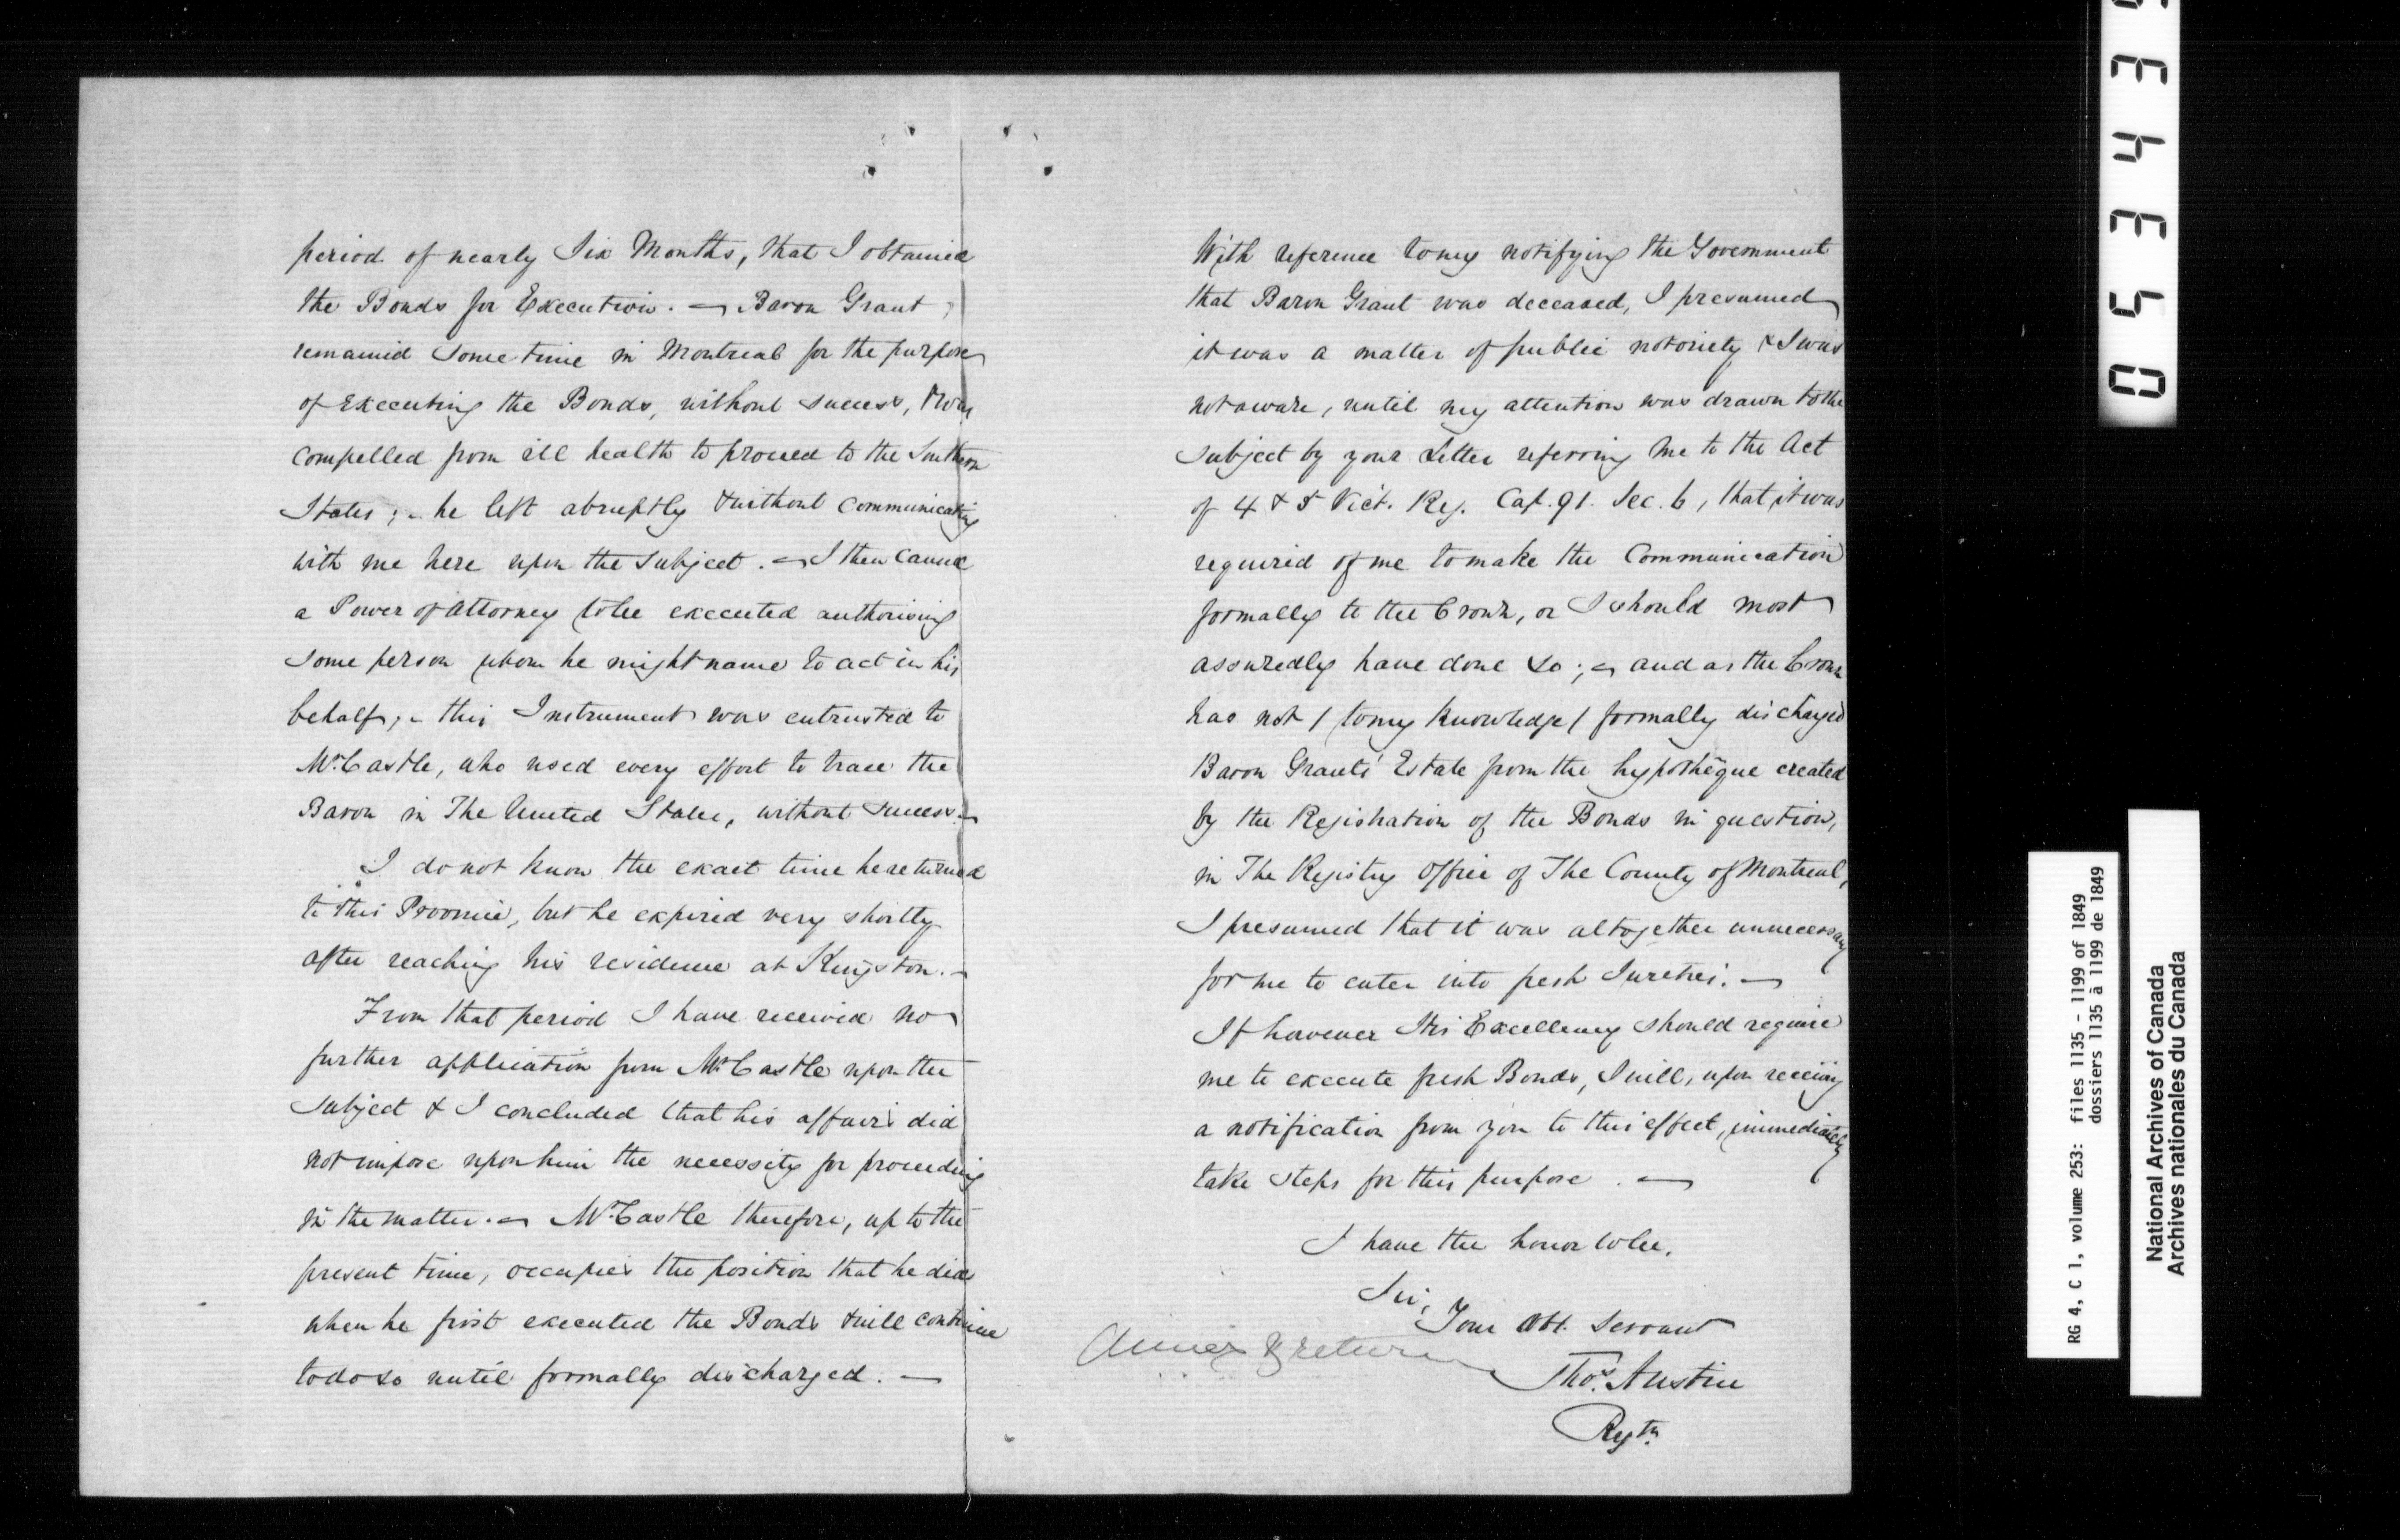 period of nearly Six Months, that I obtained
the Bonds for Execution. — Baron Grant
remained some time in Montreal for the purpose
of Executing the Bonds, without success, & was
compelled from ill health to proceed to the Southern
States; – he left abruptly & without communicating
with me here upon the subject. — I then caused
a Power of Attorney to be executed authorising
some person whom he might name to act in his
behalf; – this Instrument was entrusted to
Mr. Castle, who used every effort to trace the
Baron in The United States, without success. –
I do not know the exact time he returned
to this Province, but he expired very shortly
after reaching his residence at Kingston. –
From that period I have received no
further application from Mr Castle upon the
subject & I concluded that his affairs did
not impose upon him the necessity for proceeding
in the matter. — Mr. Castle therefore, up to the
present time, occupies the position that he did
when he first executed the Bonds & will continue
to do so until formally discharged. —
With reference to my notifying the Government
that Baron Grant was deceased, I presumed
it was a matter of public notoriety & I was
not aware, until my attention was drawn to the
subject by your Letter referring me to the Act
of 4 & 5 Vict. Reg. Cap. 91. Sec. 6, that it was
required of me to make the Communication
formally to the Crown, or I should most
assuredly have done so; — and as the Crown
has not / to my knowledge / formally discharged
Baron Grants' Estate from the hypothêque created
by the Registration of the Bonds in question,
in The Registry Office of The County of Montreal,
I presumed that it was altogether unnecessary
for me to enter into fresh Sureties. —
If however His Excellency should require
me to execute fresh Bonds, I will, upon receiving
a notification from you to this effect, immediately
take steps for this purpose. —
I have the honor to be,
Sir,
Your Obt. Servant
Thos. Austin
Regtr.
05343
RG 4, C 1, volume 253: files 1135 - 1199 of 1849
dossiers 1135 à 1199 de 1849
National Archives of Canada
Archives nationales du Canada